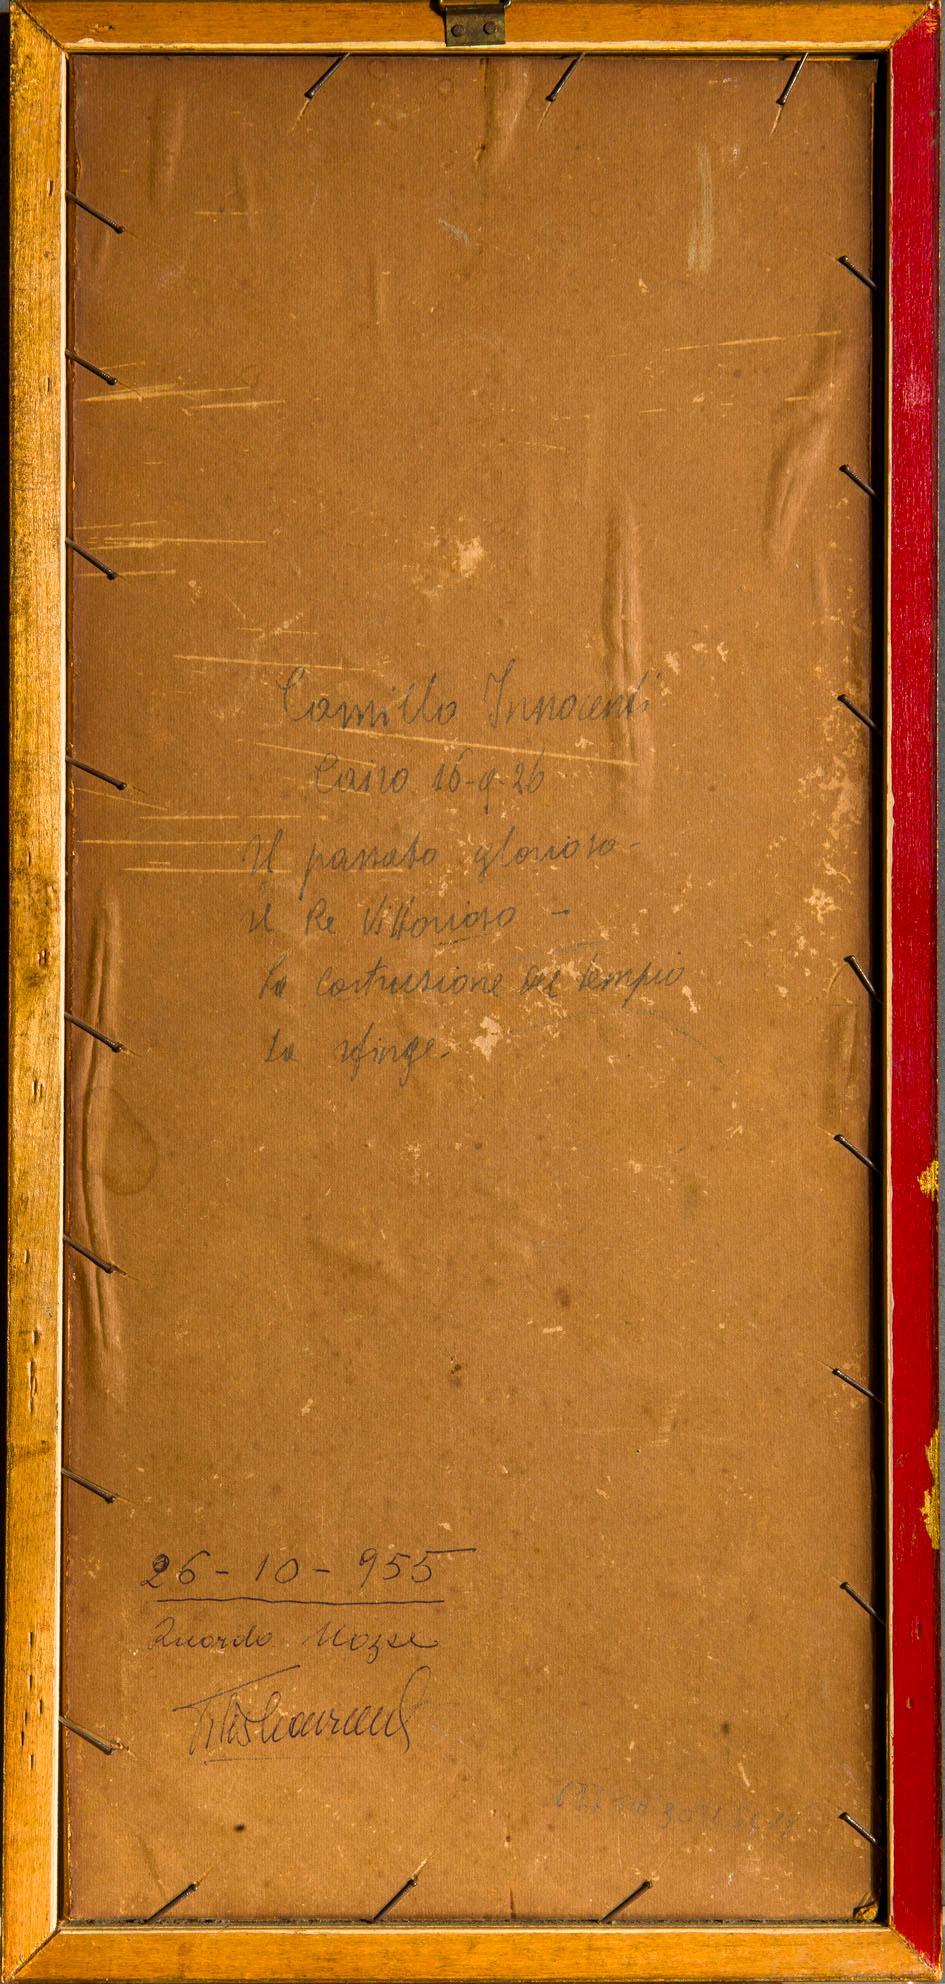 Camillo Innocenti
Cairo 16-9-26
Il passato glorioso-
il Re Vittorioso -
la costruzione del tempio
La sfinge-
26-10-955
Ricordo Nozze